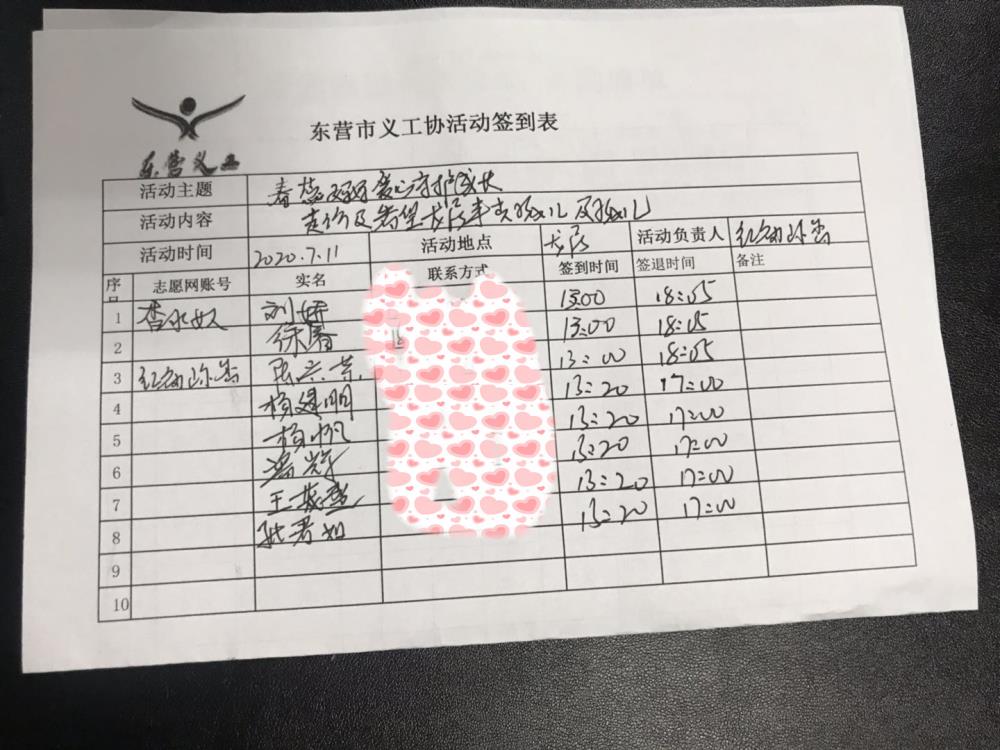 东营义工
东营市义工协活动签到表
活动主题 春蕊 爱心守护成长
活动内容 走访及希望龙居事实孤儿及孤儿
活动时间 2020.7.11 活动地点 龙居 活动负责人
序号 志愿网账号 实名 联系方式 签到时间 签退时间 备注
1 香水奴 刘娇 13:00 18:05
2 徐春 13:00 18:05
3 13:00 18:05
4 杨建明 13:20 17:00
5 杨帆 13:20 17:00
6 13:20 17:00
7 王 13:20 17:00
8 君如 13:20 17:00
9
10